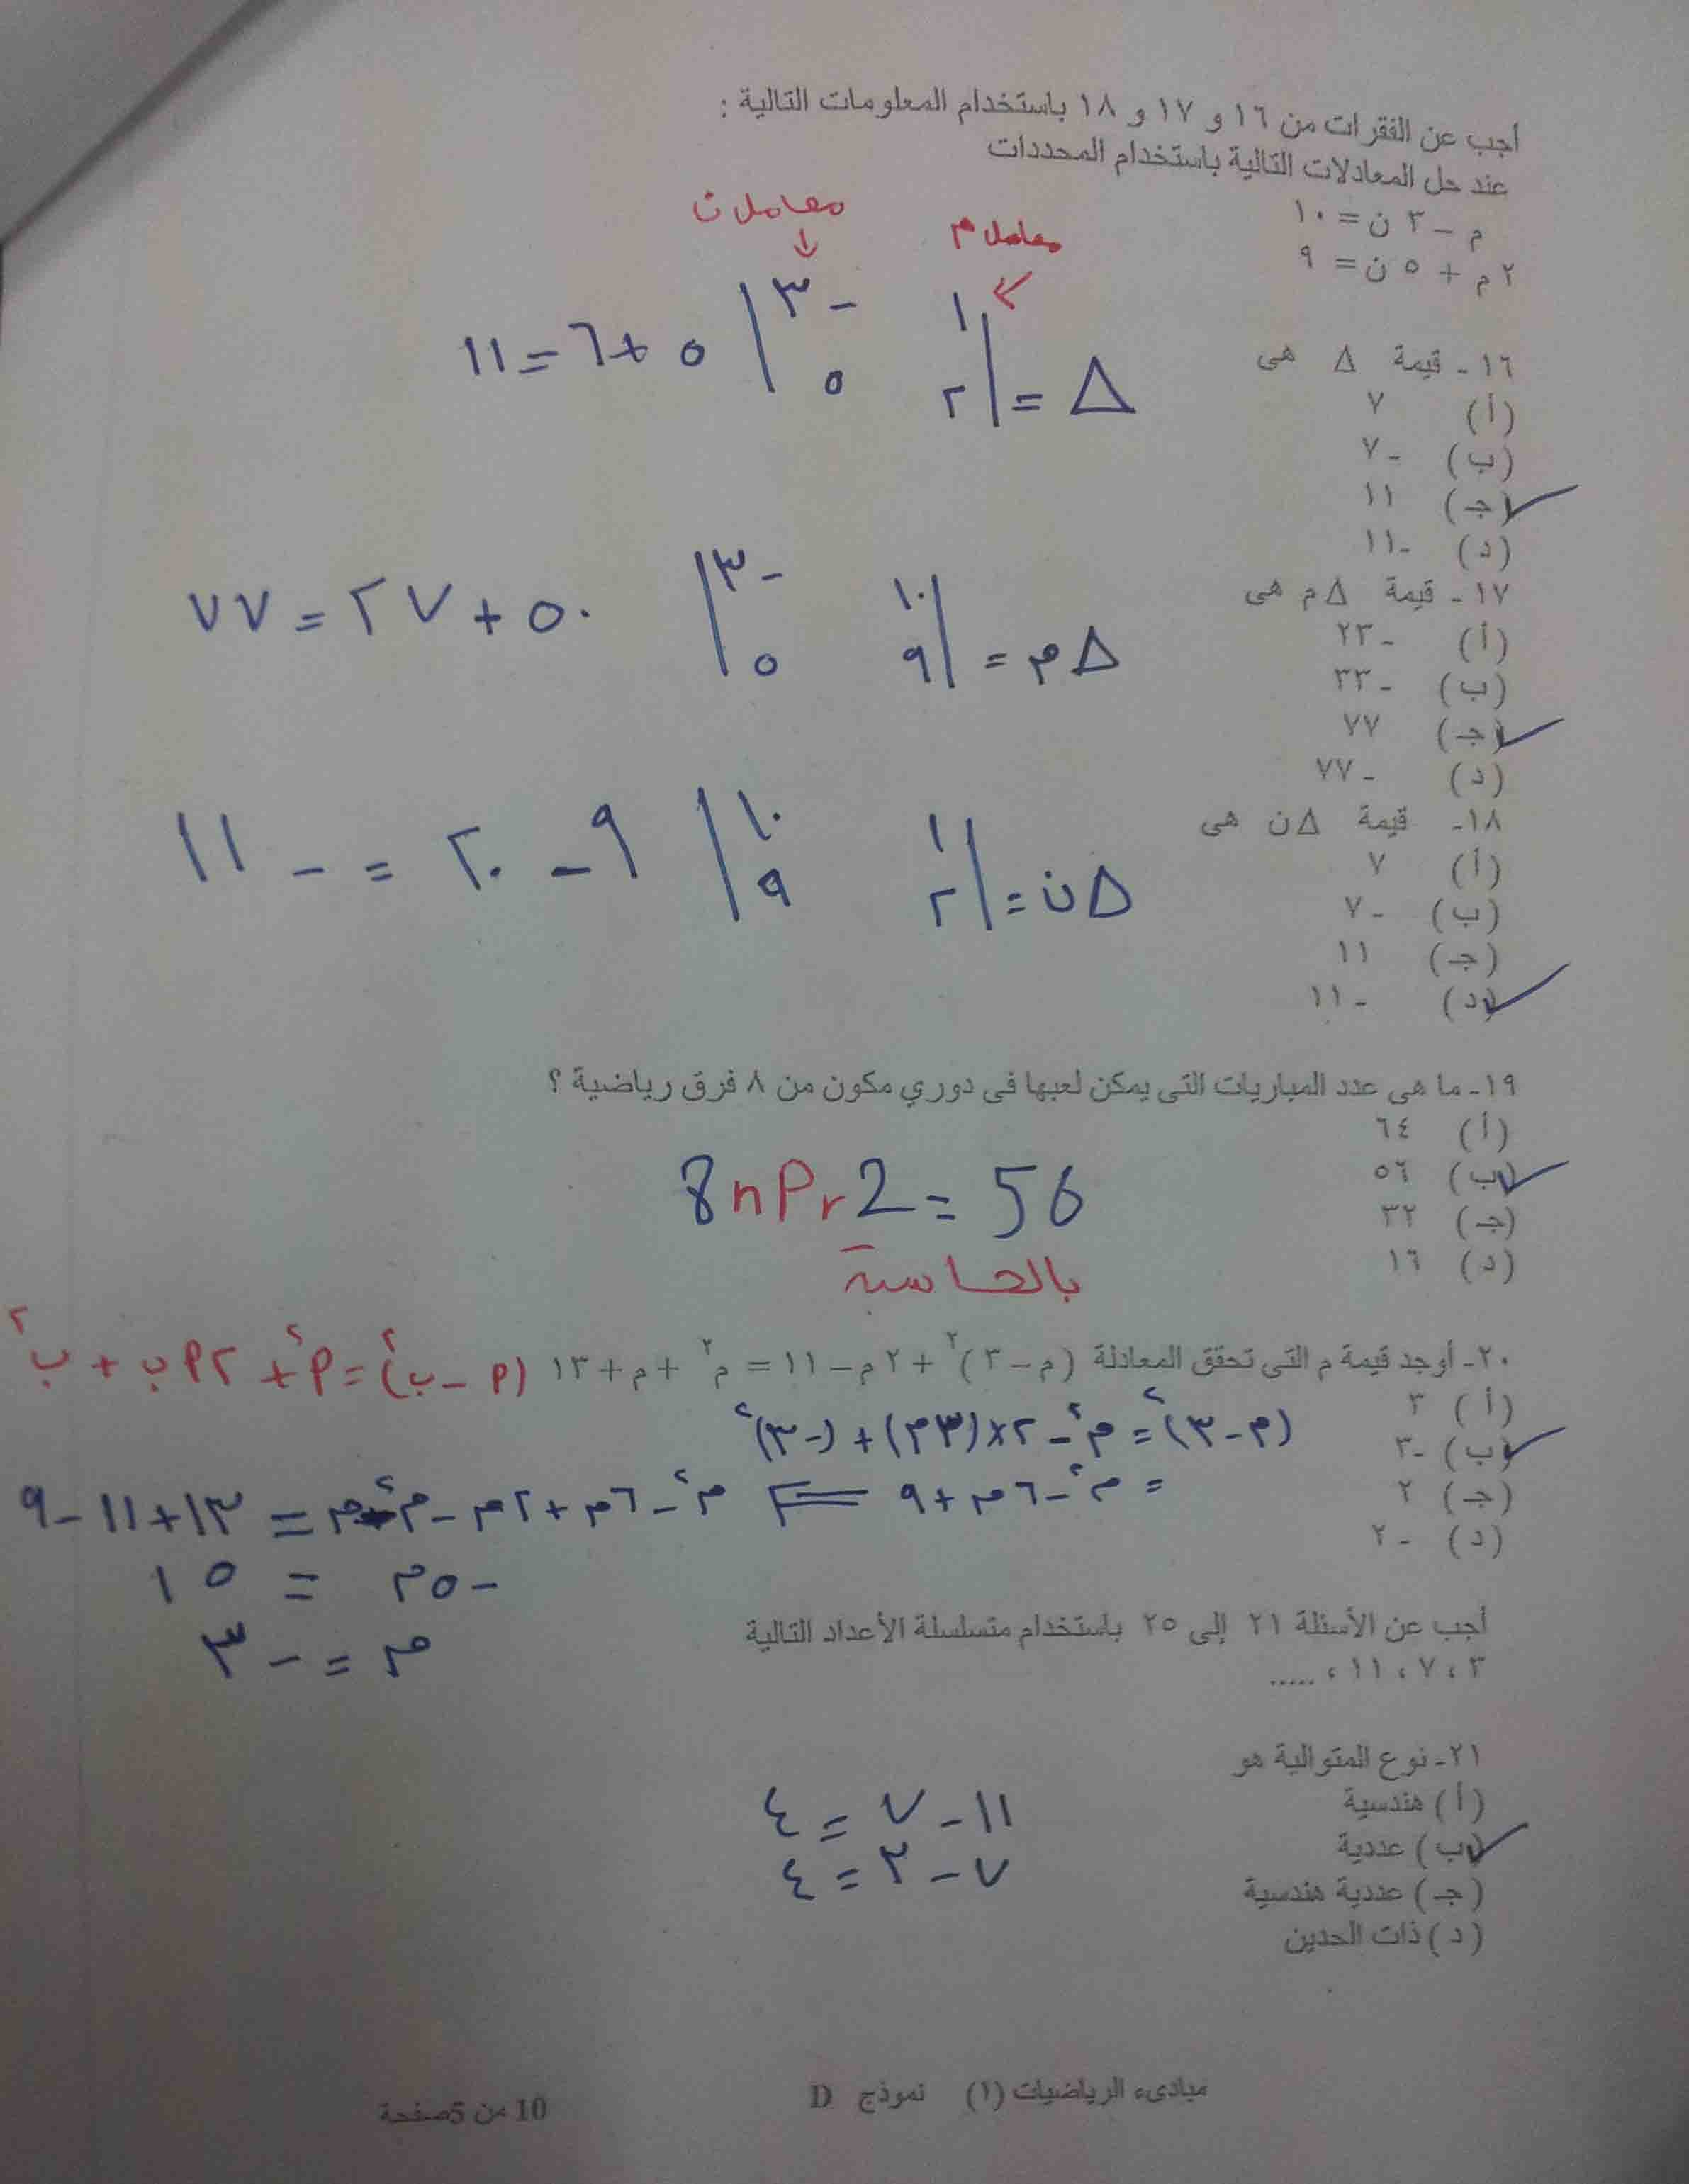 أجب عن الفقرات من ١٦ و ١٧ و ١٨ باستخدام المعلومات التالية :
عند حل المعادلات التالية باستخدام المحددات
م – ٣ ن = ١٠
٢ م + ٥ ن = ٩
معامل م
معامل ن
١٦ - قيمة Δ هى
Δ = | ١ -٣ |
| ٢ ٥ | ٥ + ٦ = ١١
(أ) ٧
(ب) -٧
(جـ) ١١
(د) -١١
١٧ - قيمة Δم هى
Δم = | ١٠ -٣ |
| ٩ ٥ | ٥٠ + ٢٧ = ٧٧
(أ) -٢٣
(ب) -٣٣
(جـ) ٧٧
(د) -٧٧
١٨- قيمة Δن هى
Δن = | ١ ١٠ |
| ٢ ٩ | ٩ - ٢٠ = - ١١
(أ) ٧
(ب) -٧
(جـ) ١١
(د) -١١
١٩- ما هى عدد المباريات التى يمكن لعبها فى دوري مكون من ٨ فرق رياضية ؟
(أ) ٦٤
(ب) ٥٦
(جـ) ٣٢
(د) ١٦
8nPr2 = 56
بالحاسبة
٢٠- أوجد قيمة م التى تحقق المعادلة (م – ٣)٢ + ٢ م – ١١ = م٢ + م + ١٣
(م - ب)٢ = م٢ + ٢م ب + ب٢
(أ) ٣
(ب) -٣
(جـ) ٢
(د) -٢
(م-٣)٢ = م٢ - ٢×(٣م) + (-٣)٢
= م٢ - ٦م + ٩
م٢ - ٦م + ٢م - م٢ - م = ١٣ + ١١ - ٩
-٥م = ١٥
م = - ٣
أجب عن الأسئلة ٢١ إلى ٢٥ باستخدام متسلسلة الأعداد التالية
٣ ، ٧ ، ١١ ، .....
٢١- نوع المتوالية هو
(أ) هندسية
(ب) عددية
(جـ) عددية هندسية
(د) ذات الحدين
١١ - ٧ = ٤
٧ - ٣ = ٤
مبادىء الرياضيات (١) نموذج D
10 من 5صفحة